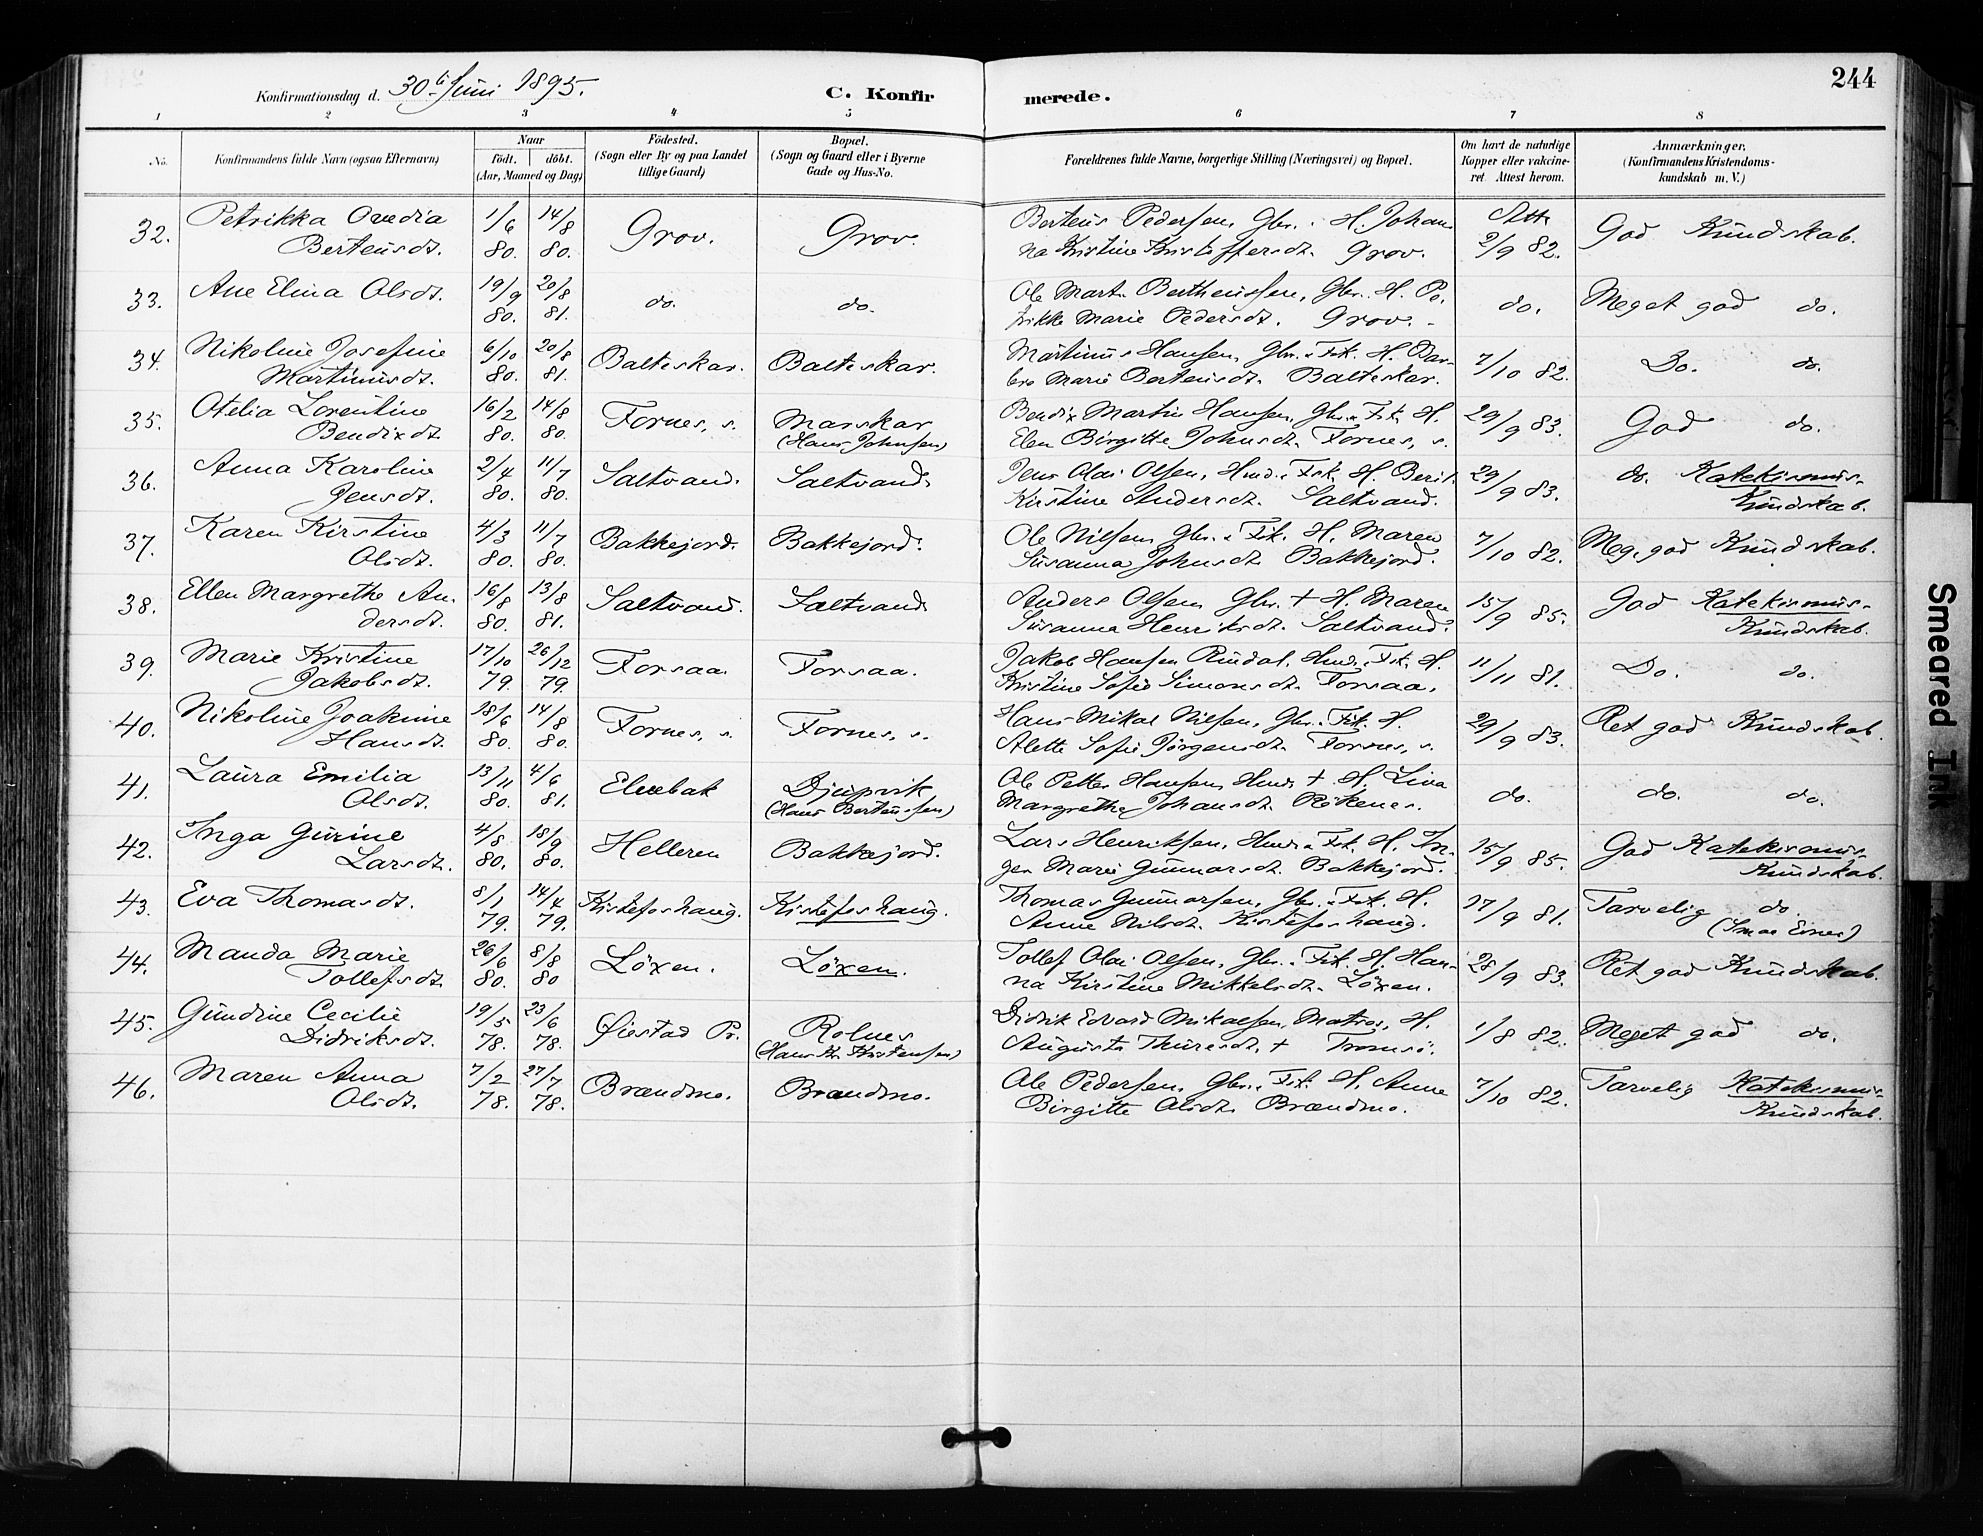 244
Konfirmationsdag d. 30t Juni 1895.
C. Konfirmerede.
1 2 3 4 5 6 7 8
No. Konfirmandens fulde Navn (ogsaa Efternavn) Naar født. døbt. (Aar, Maaned og Dag) Fødested. (Sogn eller By og paa Landet tillige Gaard) Bopæl. (Sogn og Gaard eller i Byerne Gade og Hus-No. Forældrenes fulde Navne, borgerlige Stilling (Næringsvei) og Bopæl. Om havt de naturlige Kopper eller vakcineret. Attest herom. Anmærkninger. (Konfirmandens Kristendomskundskab m. V.)
32. Petrikka Ovedia 1/6 14/8 Grov. Grov. Berteus Pedersen, Gbr. H. Johan- Att. God Kundskab.
Berteusdt. 80. 80. na Kristine Kristoffersdt. Grov. 2/9 82.
33. Ane Elina Olsdt. 19/9 20/8 do. do. Ole Mart. Bertheussen, Gbr. H. Pe- do. Meget god do.
80. 81. trikke Marie Pedersdt. Grov.
34. Nikoline Josefine 6/10 20/8 Balteskar. Balteskar. Martinus Hansen, Gbr. & Fsk. H. Bar- 7/10 82. Do. do.
Martinusdt. 80. 81. bro Marie Berteusdt. Balteskar.
35. Otelia Lorentine 16/2 14/8 Fornes, s. Marskar Bendix Martin Hansen, Gbr. & Fsk. H. 29/9 83. God do.
Bendixdt. 80. 80. (Hans Johnsen) Elen Birgitte Johnsdt. Fornes, s.
36. Anna Karoline 2/4 11/7 Saltvand. Saltvand. Jens Olai Olsen, Hmd. & Fsk. H. Berit 29/9 83. do. Katekismus-
Jensdt. 80. 80. Kirstine Andersdt. Saltvand. Kundskab.
37. Karen Kirstine 4/3 11/7 Bakkejord. Bakkejord. Ole Nilsen, Gbr. & Fsk. H. Maren 7/10 82. Meg. god Kundskab.
Olsdt. 80. 80. Susanna Johnsdt. Bakkejord.
38. Ellen Margrethe An- 16/8 13/8 Saltvand. Saltvand Anders Olsen, Gbr. + H. Maren 15/9 85. God Katekismus-
dersdt. 80. 81. Susanna Henriksdt. Saltvand. Kundskab.
39. Marie Kristine 17/10 26/12 Forsaa. Forsaa. Jakob Hansen Rindal, Hmd. Fsk. H. 11/11 81. Do. do.
Jakobsdt. 79. 79. Kristine Sofie Simonsdt. Forsaa.
40. Nikoline Joakime 18/6 14/8 Fornes, s. Fornes, s. Hans Mikal Nilsen, Gbr. & Fsk. H. 29/9 83. Ret god Kundskab.
Hansdt. 80. 80. Alette Sofie Jørgensdt. Fornes, s.
41. Laura Emilia 13/11 4/6 Elvebak Djupvik Ole Petter Hansen, Hmd. + H. Lina do. do. do.
Olsdt. 80. 81. (Hans Berteussen) Margrethe Johansdt. Røkenes.
42. Inga Gurine 4/8 18/9 Helleren Bakkejord. Lars Henriksen, Hmd. & Fsk. H. In- 15/9 85. God Katekismus-
Larsdt. 80. 80. ger Marie Gunnarsdt. Bakkejord. Kundskab.
43. Eva Thomasdt. 8/1 14/4 Kistefoshaug. Kistefoshaug. Thomas Gunnarsen, Gbr. & Fsk. H. 17/9 81. Tarvelig do.
79. 79. Anne Nilsdt. Kistefoshaug. (Smaa Evner)
44. Manda Marie 26/6 8/8 Løxen. Løxen. Tollef Olai Olsen, Gbr. & Fsk. H. Han- 28/9 83. Ret god Kundskab.
Tollefsdt. 80. 80 na Kirstine Mikkelsdt. Løxen.
45. Gundine Cecilie 19/5 23/6 Øiestad Pr. Rolnes Didrik Edvard Mikaelsen, Matros, H. 1/8 82. Meget god do.
Didriksdt. 78. 78. (Hans Kr. Kristensen) Augusta Thuresdt. + Tromsø.
46. Maren Anna 7/2 27/7 Brændmo. Brændmo. Ole Pedersen, Gbr. & Fsk. H. Anne 7/10 82. Tarvelig Katekismus-
Olsdt. 78. 78. Birgitte Olsdt. Brændmo. Kundskab.
Smeared Ink